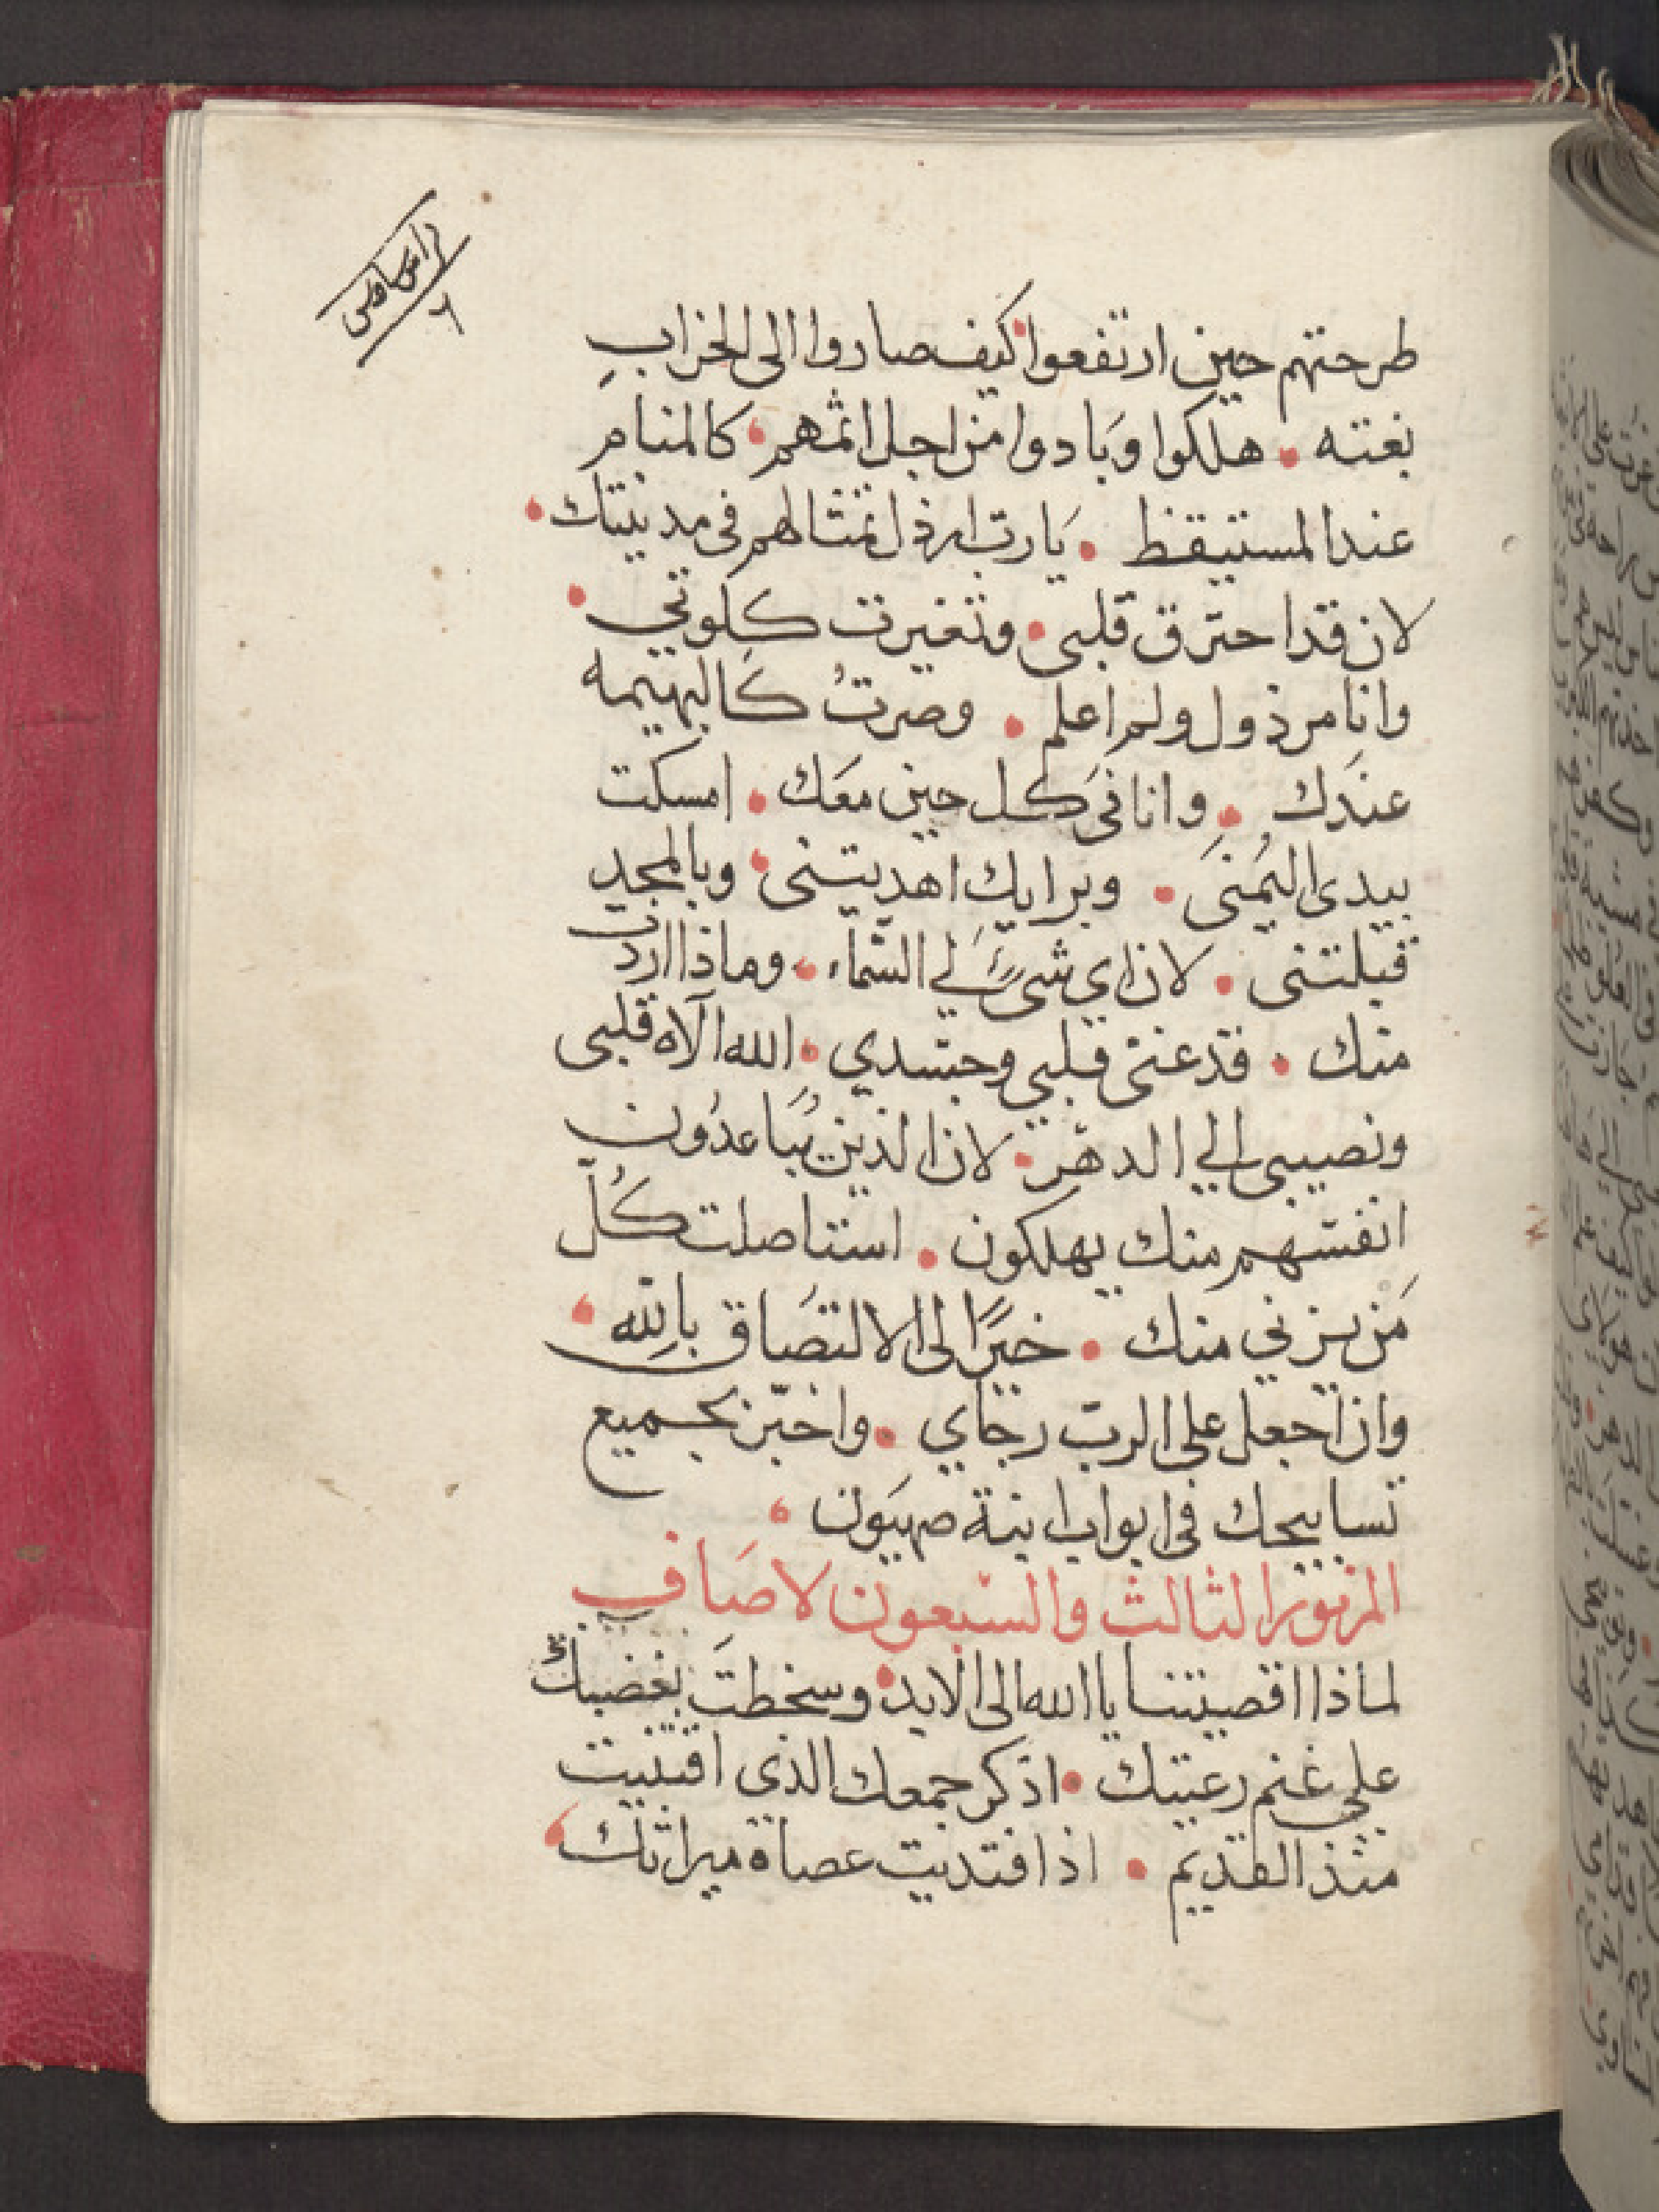 طرحتهم حين ارتفعوا كيف صاروا الى الخراب
بغتته • هلكوا وَبَادوا من اجل اثمهم • كالمنام
عند المستيقظ • يَارب ارذل تمثالهم فى مدينتك •
لان قد احترق قلبى • وتغيرت كلوتي •
وانا مرذول ولم اعلم • وصرتُ كَالبهيمه
عندَك • وانا فى كل حين معَك • امسكت
بيدى اليُمنىَ • وبرايك اهديتنى • وبالمجد
قبلتنى • لان اي شىً لي السّماء • وماذا اردت
منك • قد عنى قلبي وجسدي • الله آلاه قلبى
ونصيبى الي الدهر • لان الذين يُبَاعدُون
انفسهم منك يهلكون • استاصلت كُلّ
مَن يزني منك • خيرًا لى الالتصَاق بالله •
وان اجعل على الرب رجاي • واخبّر بجميع
تسابيحك فى ابواب ابنة صهيَون •
المزمور الثالث والسبعون لاصَاف
لماذا اقصيتنا يا الله الى الابد • وسخطتَ بغضبك
علي غنم رعيتك • اذكر جمعك الذى اقتنيت
منذ القديم • اذ افتديت عصاة ميراثك •